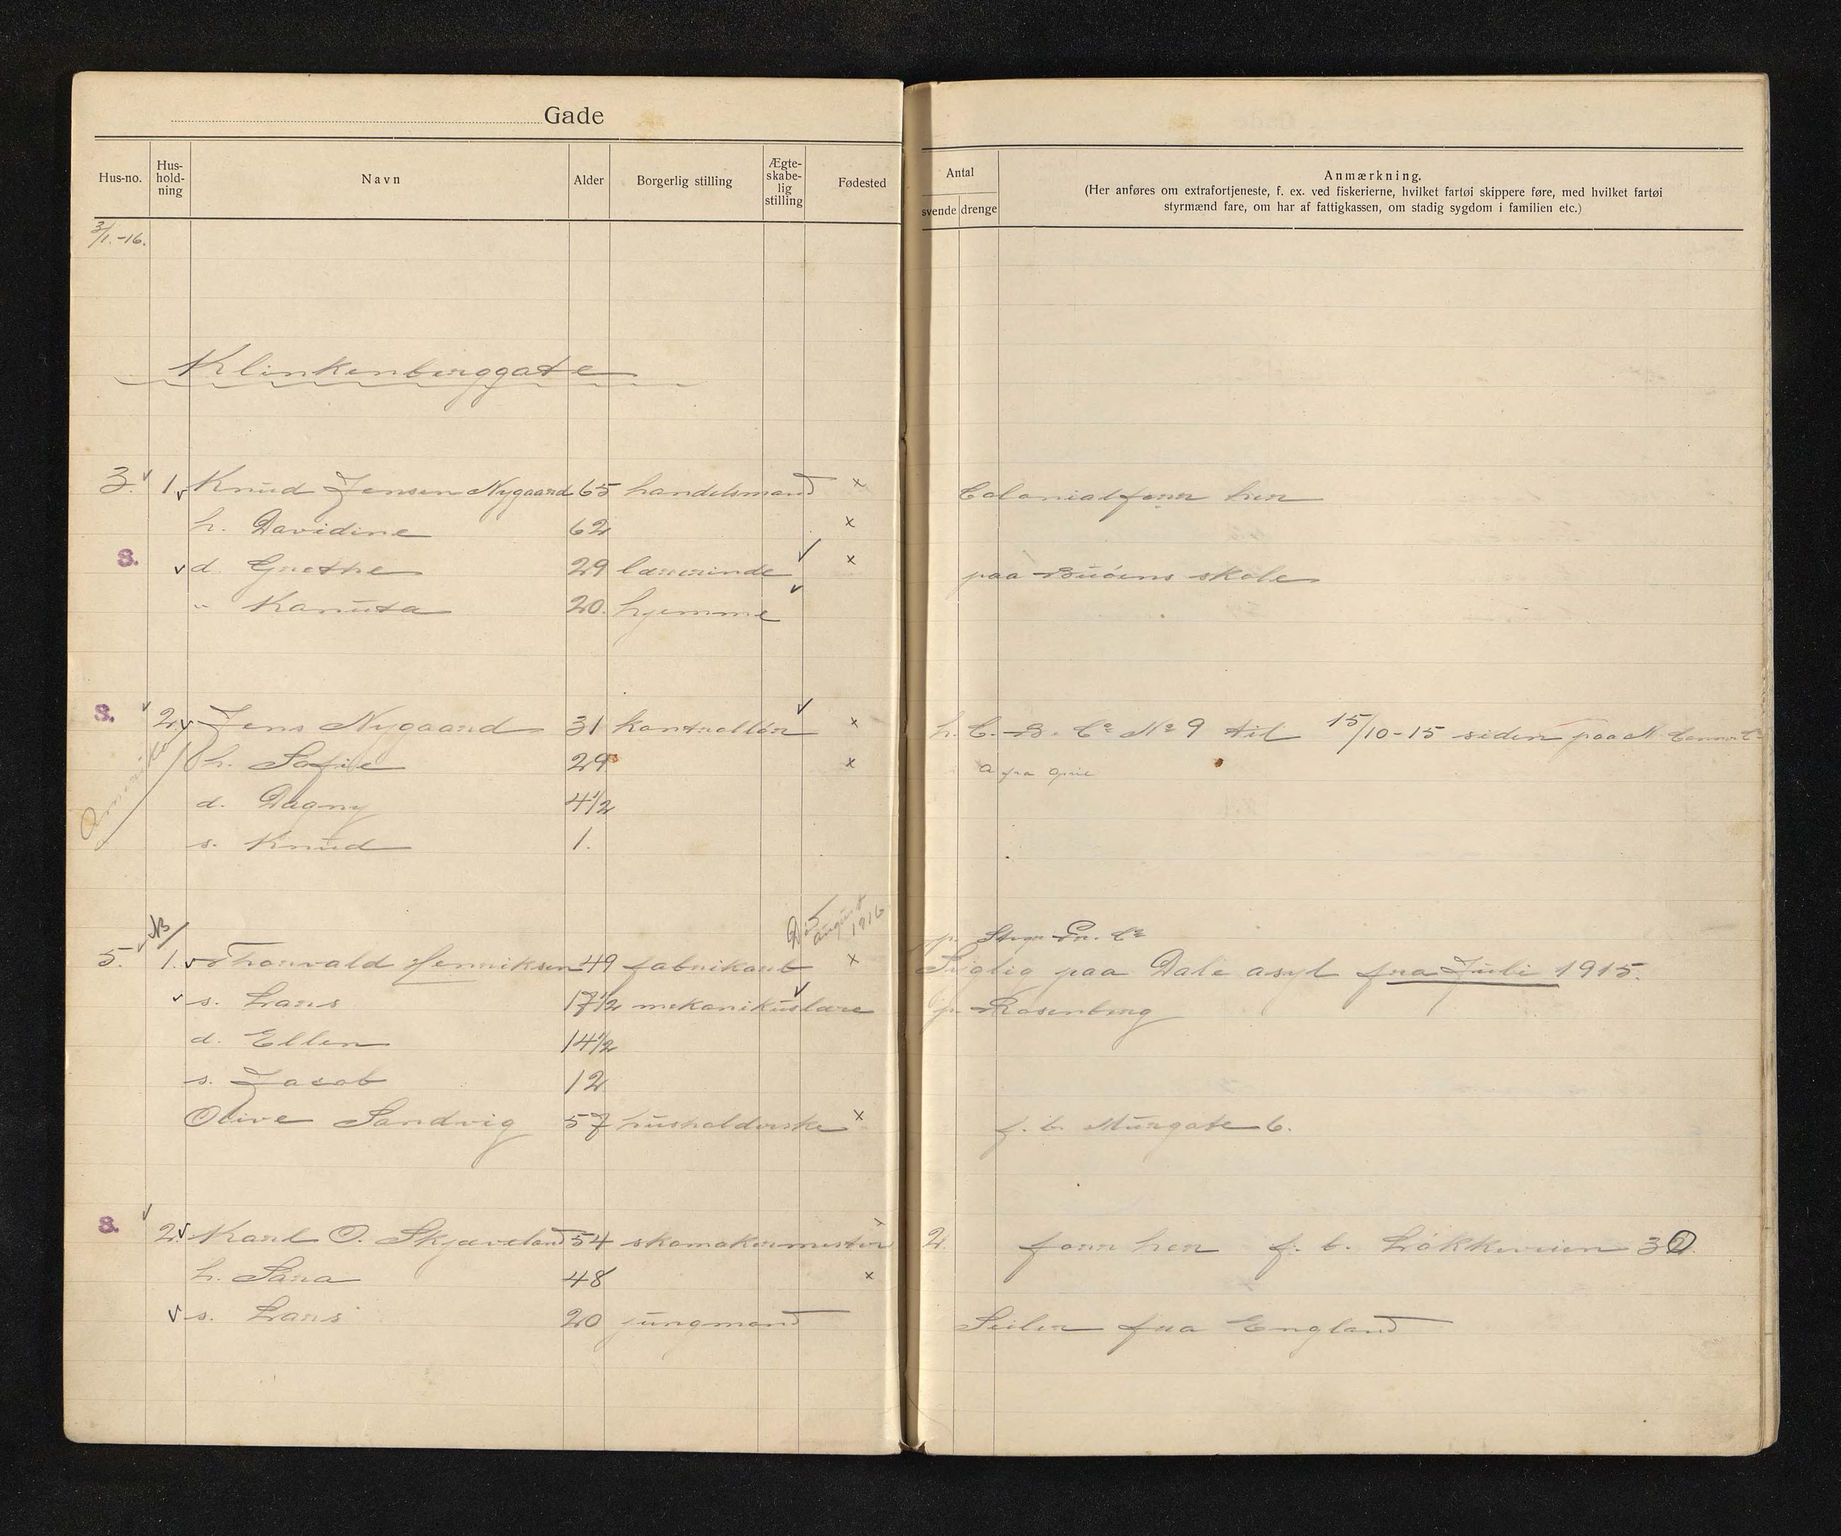 Gade
Hus-no. Hus-hold-ning Navn Alder Borgerlig stilling Ægte-skabe-lig stilling Fødested
3/1.-16.
Klinkenberggate
3. 1. Knud Jensen Nygaard 65 handelsmand x
h. Davidine 62 x
S. d. Grethe 29 lærerinde x
" Kanuta 20. hjemme
S. 2. Jens Nygaard 31 kontrollør x
h. Sofie 29 x
d. Dagny 4 1/2
s. Knud 1.
Amerika
NB
Død august 1916
5. 1. Thorvald Henriksen 49 fabrikarb x
s. Lars 17 1/2 mekanikuslære
d. Ellen 14 1/2
s. Jacob 12
Olive Sandvig 57 husholderske x
S. 2. Karl O. Skjæveland 54 skomakermester x
h. Sara 48 x
s. Lars 20 jungmand
Antal
svende drenge
Anmærkning.
(Her anføres om extrafortjeneste, f. ex. ved fiskerierne, hvilket fartøi skippere føre, med hvilket fartøi
styrmænd fare, om har af fattigkassen, om stadig sygdom i familien etc.)
Colonialforr her
paa Buøens skole
h. C. B. Co No 9 til 15/10-15 siden paa N.
a fra
p. Pr. Co
Syglig paa Dale asyl fra Juli 1915.
p. Rosenberg
f. b. Murgate 6.
2. forr her f. b. Løkkeveien
Seiler fra England